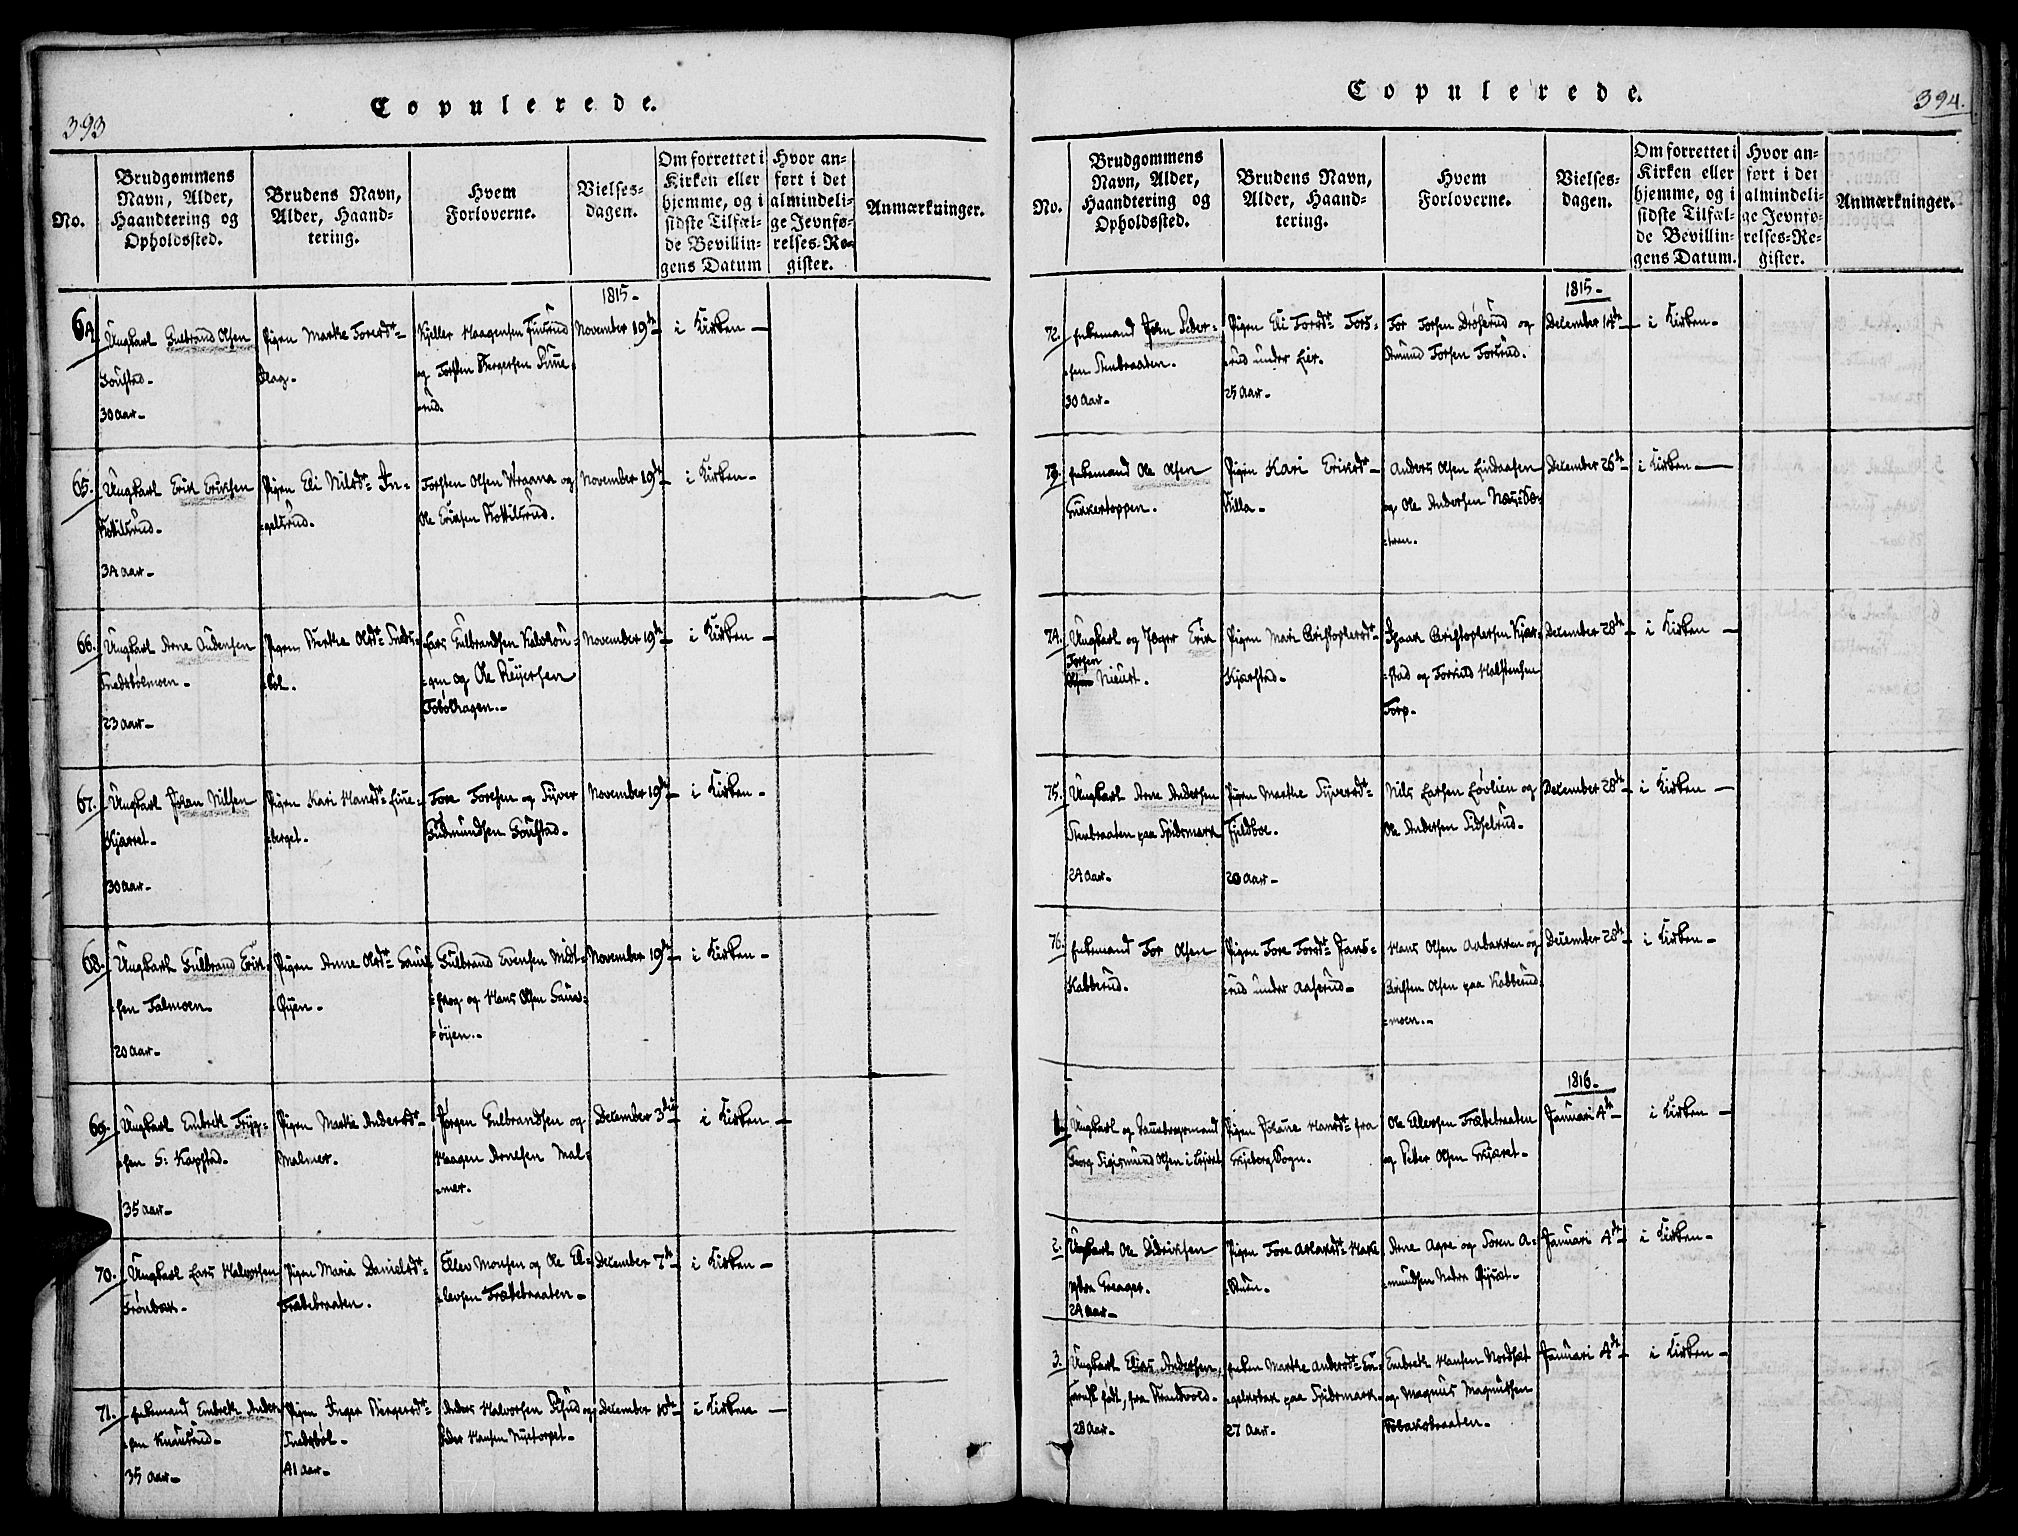 393
Copulerede.
No.
Brudgommens
Navn, Alder,
Haandtering og
Opholdssted.
Brudens Navn,
Alder, Haand-
tering.
Hvem
Forloverne.
Vielses-
dagen.
Om forrettet i
Kirken eller
hjemme, og i
sidste Tilfæl-
de Bevillin-
gens Datum
Hvor an-
ført i det
almindeli-
ge Jevnfø-
relses-Re-
gister.
Anmærkninger.
1815-
64
Ungkarl Gulbrand Olsen
30 aar-
Pigen Marthe Toresdt-
Kjeller Haagensen
og Torsten Bergersen
rud.
November 19de-
i Kirken-
65.
Ungkarl Erik Eriksen
Kottilsrud-
34 aar-
Pigen Eli Nilsdt- In-
gelsrud.
Torsten Olsen Vraana og
Ole Eriksen Kottilsrud.
November 19de-
i Kirken-
66.
Ungkarl Arne Audensen
Snedsbølmoen-
23 aar-
Pigen Berthe Olsdt- Sneds-
bøl.
Lars Gulbrandsen
gen og Ole Reijersen
Tobølhagen.-
November 19de-
i Kirken-
67.
Ungkarl Johan Nilsen
Kjærret-
30 aar-
Pigen Kari Hansdt-
berget-
Tore Toresen og Syver
Gudmundsen
November 19de-
i Kirken-
68.
Ungkarl Gulbrand Erik-
sen Talmoen-
20 aar-
Pigen Anne Olsdt-
Øyen-
Gulbrand Evensen Midt-
skog og Hans Olsen
øijen.-
November 19de-
i Kirken-
69-
Ungkarl Embrek Tryg-
sen S: Kapstad-
35 aar-
Pigen Marthe Andersdt-
Malmer.
Jørgen Gulbrandsen og
Haagen Arnesen Mal-
mer.
December 3die
i Kirken-
70.
Ungkarl Lars Halvorsen
Pigen Maria Danielsdt-
Fræbebraaten.
Ellev Monsen og Ole El-
levsen Fræbebraaten-
December 7de-
i Kirken-
71.
Enkemand Embrek Ander-
sen
35 aar-
Pigen Inger Bergersdt-
Snedsbøl-
41 aar-
Anders Halvorsen og
Peder Hansen Nustorpet-
December 10de-
i Kirken-
394.
Copulerede.
No.
Brudgommens
Navn, Alder,
Haandtering og
Opholdssted.
Brudens Navn,
Alder, Haand-
tering.
Hvem
Forloverne.
Vielses-
dagen.
Om forrettet i
Kirken eller
hjemme, og i
sidste Tilfæl-
de Bevillin-
gens Datum.
Hvor an-
ført i det
almindeli-
ge Jevnfø-
relses-Re-
gister.
Anmærkninger.
1815-
72.
Enkemand John Peder-
sen Stenbraaten.
30 aar-
Pigen Eli Torsdt- Tors-
rud under Lier.
25 aar-
Tor Torsen Drøserud og
Amund Torsen Torsrud.
December 14de-
i Kirken-
73.
Enkemand Ole Olsen
Gukkertoppen.
Pigen Kari Eriksdt-
Killa-
Anders Olsen Lindaasen
og Ole Andersen
teren.
December 26de-
i Kirken-
74.
Ungkarl og Jæger Erik
Torsen
Niqust.
Pigen Mari Christophersdt-
Kjærstad-
Isaak Christophersen Kjær-
stad og Torkild Halstensen
Torp-
December 28de-
i Kirken-
75.
Ungkarl Arne Andersen
Stenbraaten paa Spidsmark
24 aar-
Pigen Marthe Syversdt-
Fjeldboe.
20 aar-
Nils Larsen Løvlien og
Ole Andersen Sidselrud-
December 28de-
i Kirken-
76.
Enkemand Tor Olsen
Kabberud.
Pigen Tore Torsdt- Jans-
rud under Aaserud-
Hans Olsen Aabakken og
Christen Olsen paa Kabberud
moen.-
December 28de-
i Kirken-
1816-
1.
Ungkarl og
Georg Sigismund Olsen i
Pigen Johanne Hansdt- fra
Sogn-
Ole Ellevsen Fræbebraaten
og Petter Olsen
Januari 4de-
i Kirken-
2.
Ungkarl Ole Didriksen
24 aar-
Pigen Tore
Arne Agre og Soren A-
mundsen Nedre
Januari 4de-
i Kirken-
3.
Ungkarl Elias Andersen,
født, fra Strandvold-
28 aar-
Enken Marthe Andersdt-
paa Spidsmark-
27 aar-
Embrek Hansen Nordset
og Magnus Magnussen
Tobaksbraaten-
Januari 4de-
i Kirken-